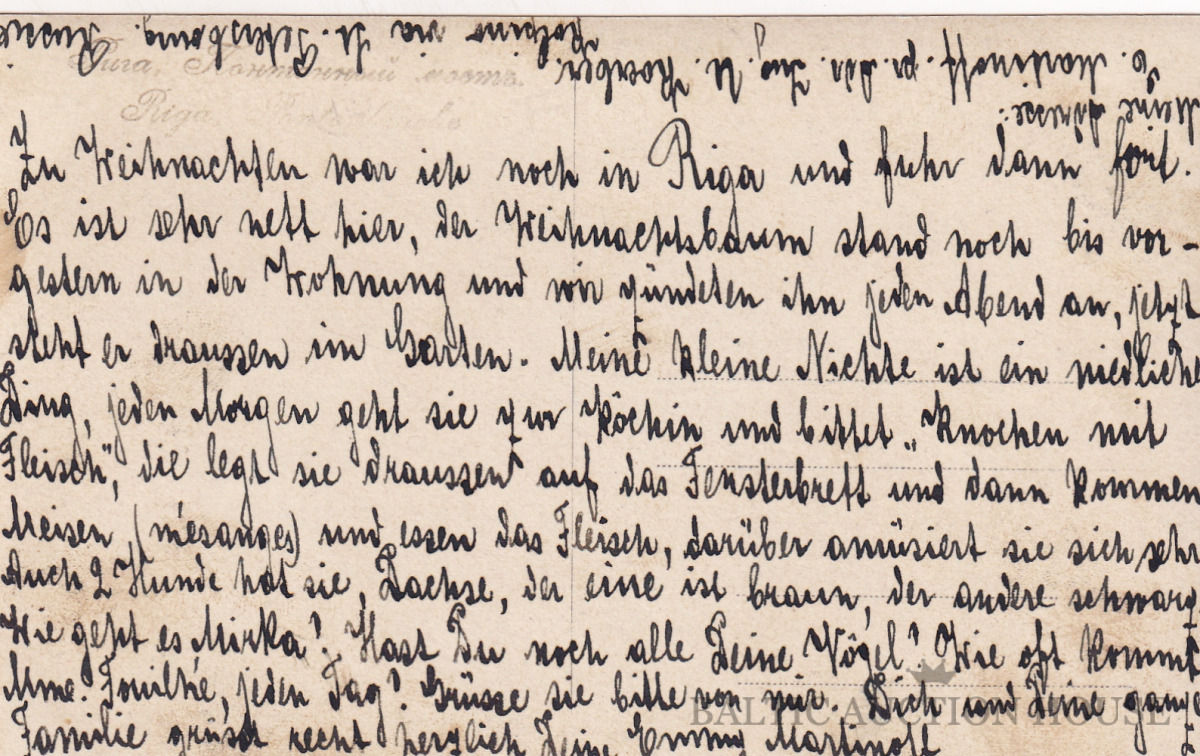 Рига, Понтонный мостъ.
Riga
Zu Weihnachten war ich noch in Riga und fuhr dann fort.
Es ist sehr nett hier, der Weihnachtsbaum stand noch bis vor-
gestern in der Wohnung und wir zündeten ihn jeden Abend an, jetzt
steht er draussen im Garten. Meine kleine Nichte ist ein niedliches
Ding, jeden Morgen geht sie zur Köchin und bittet „Knochen mit
Fleisch", die legt sie draussen auf das Fensterbrett und dann kommen
Meisen (mésanges) und essen das Fleisch, darüber amüsiert sie sich sehr.
Auch 2 Hunde hat sie, Dachse, der eine ist braun, der andere schwarz
Wie geht es Mirka? Hast Du noch alle Deine Vögel? Wie oft kommt
Mme. jeden Tag? Grüsse sie bitte von mir. Dich und Deine ganze
Familie grüsst recht herzlich Deine Emmy Martinoff
Meine Adresse:
E. Martinoff. pr. Adr. Ing. N.
Kolpino via St. Petersburg. Russie
BALTIC AUCTION HOUSE